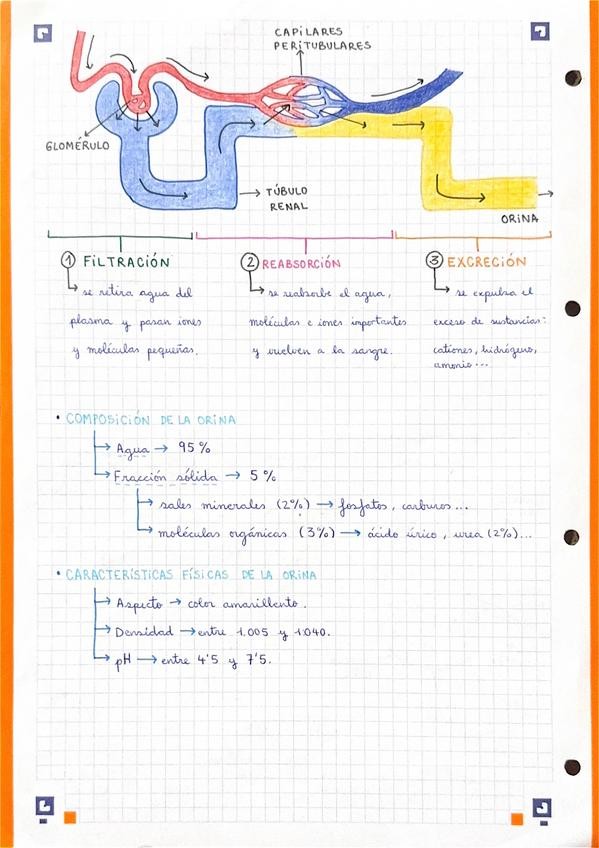 CAPILARES
PERITUBULARES
GLOMÉRULO
TÚBULO
RENAL
ORINA
1 FILTRACIÓN
se retira agua del
plasma y pasan iones
y moléculas pequeñas.
2 REABSORCIÓN
se reabsorbe el agua,
moléculas e iones importantes
y vuelven a la sangre.
3 EXCRECIÓN
se expulsa el
exceso de sustancias:
cationes, hidrógeno,
amonio...
• COMPOSICIÓN DE LA ORINA
Agua → 95%
Fracción sólida → 5%
sales minerales (2%) → fosfatos, carburos...
moléculas orgánicas (3%) → ácido úrico, urea (2%)...
• CARACTERÍSTICAS FÍSICAS DE LA ORINA
Aspecto → color amarillento.
Densidad → entre 1.005 y 1.040.
pH → entre 4'5 y 7'5.